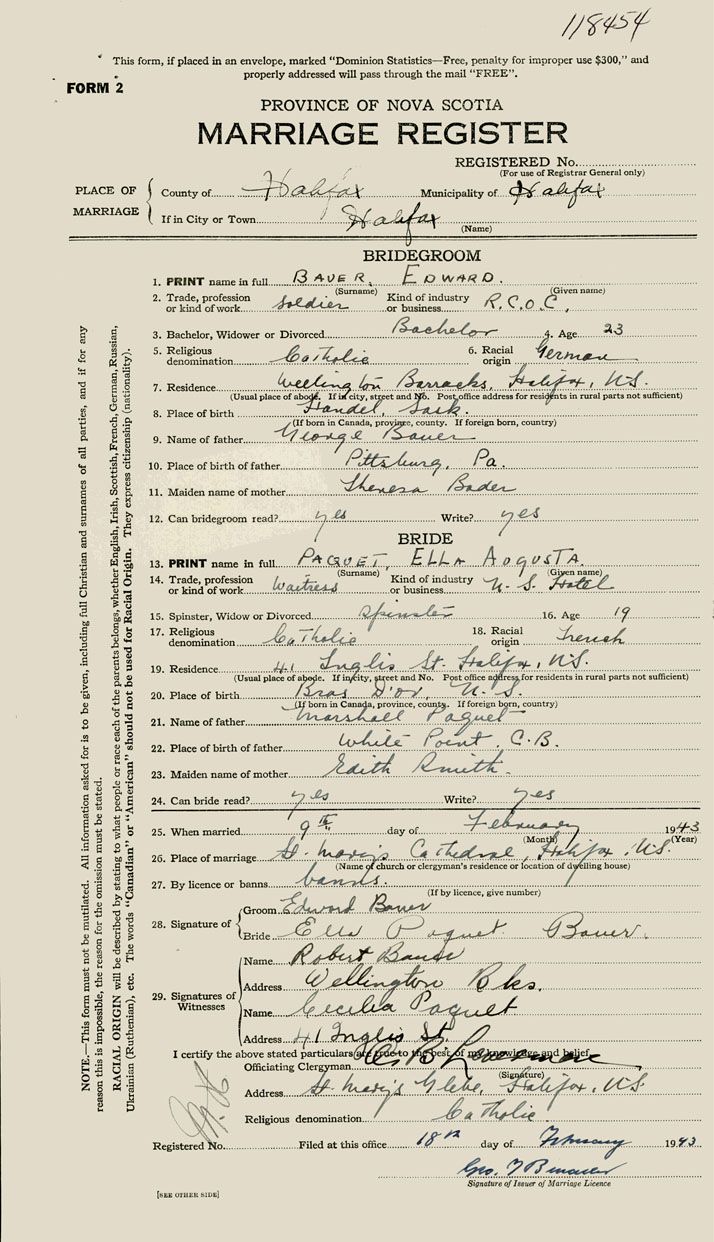 118454
This form, if placed in an envelope, marked "Dominion Statistics—Free, penalty for improper use $300," and
properly addressed will pass through the mail "FREE".
FORM 2
PROVINCE OF NOVA SCOTIA
MARRIAGE REGISTER
REGISTERED No.
(For use of Registrar General only)
PLACE OF MARRIAGE
County of Halifax Municipality of Halifax
If in City or Town Halifax
(Name)
BRIDEGROOM
1. PRINT name in full BAUER, EDWARD.
(Surname) (Given name)
2. Trade, profession or kind of work Soldier Kind of industry or business R.C.O.C,
3. Bachelor, Widower or Divorced Bachelor 4. Age 23
5. Religious denomination Catholic 6. Racial origin German
7. Residence Wellington Barracks, Halifax, N.S.
(Usual place of abode. If in city, street and No. Post office address for residents in rural parts not sufficient)
8. Place of birth Handel, Sask.
(If born in Canada, province, county. If foreign born, country)
9. Name of father George Bauer
10. Place of birth of father Pittsburg, Pa.
11. Maiden name of mother Theresa Bader
12. Can bridegroom read? yes Write? yes
BRIDE
13. PRINT name in full PAQUET, ELLA AUGUSTA.
(Surname) (Given name)
14. Trade, profession or kind of work Waitress Kind of industry or business N.S. Hotel
15. Spinster, Widow or Divorced Spinster 16. Age 19
17. Religious denomination Catholic 18. Racial origin French
19. Residence 41 Inglis St. Halifax, N.S.
(Usual place of abode. If in city, street and No. Post office address for residents in rural parts not sufficient)
20. Place of birth Bras D'or, N.S.
(If born in Canada, province, county. If foreign born, country)
21. Name of father Marshall Paquet
22. Place of birth of father White Point, C.B.
23. Maiden name of mother Edith Smith.
24. Can bride read? yes Write? yes
25. When married 9th day of February 1943
(Month) (Year)
26. Place of marriage St. Mary's Cathedral, Halifax, N.S.
(Name of church or clergyman's residence or location of dwelling house)
27. By licence or banns banns.
(If by licence, give number)
28. Signature of
Groom Edward Bauer
Bride Ella Paquet Bauer.
29. Signatures of Witnesses
Name Robert Bauer
Address Wellington Bks.
Name Cecilia Paquet
Address 41 Inglis St.
I certify the above stated particulars are true to the best of my knowledge and belief.
Officiating Clergyman
(Signature)
Address St. Mary's Glebe, Halifax, N.S.
Religious denomination Catholic.
Registered No. Filed at this office 18th day of February 1943
Geo.
Signature of Issuer of Marriage Licence
[SEE OTHER SIDE]
NOTE.—This form must not be mutilated. All information asked for is to be given, including full Christian and surnames of all parties, and if for any
reason this is impossible, the reason for the omission must be stated.
RACIAL ORIGIN will be described by stating to what people or race each of the parents belongs, whether English, Irish, Scottish, French, German, Russian,
Ukrainian (Ruthenian), etc. The words "Canadian" or "American" should not be used for Racial Origin. They express citizenship (nationality).